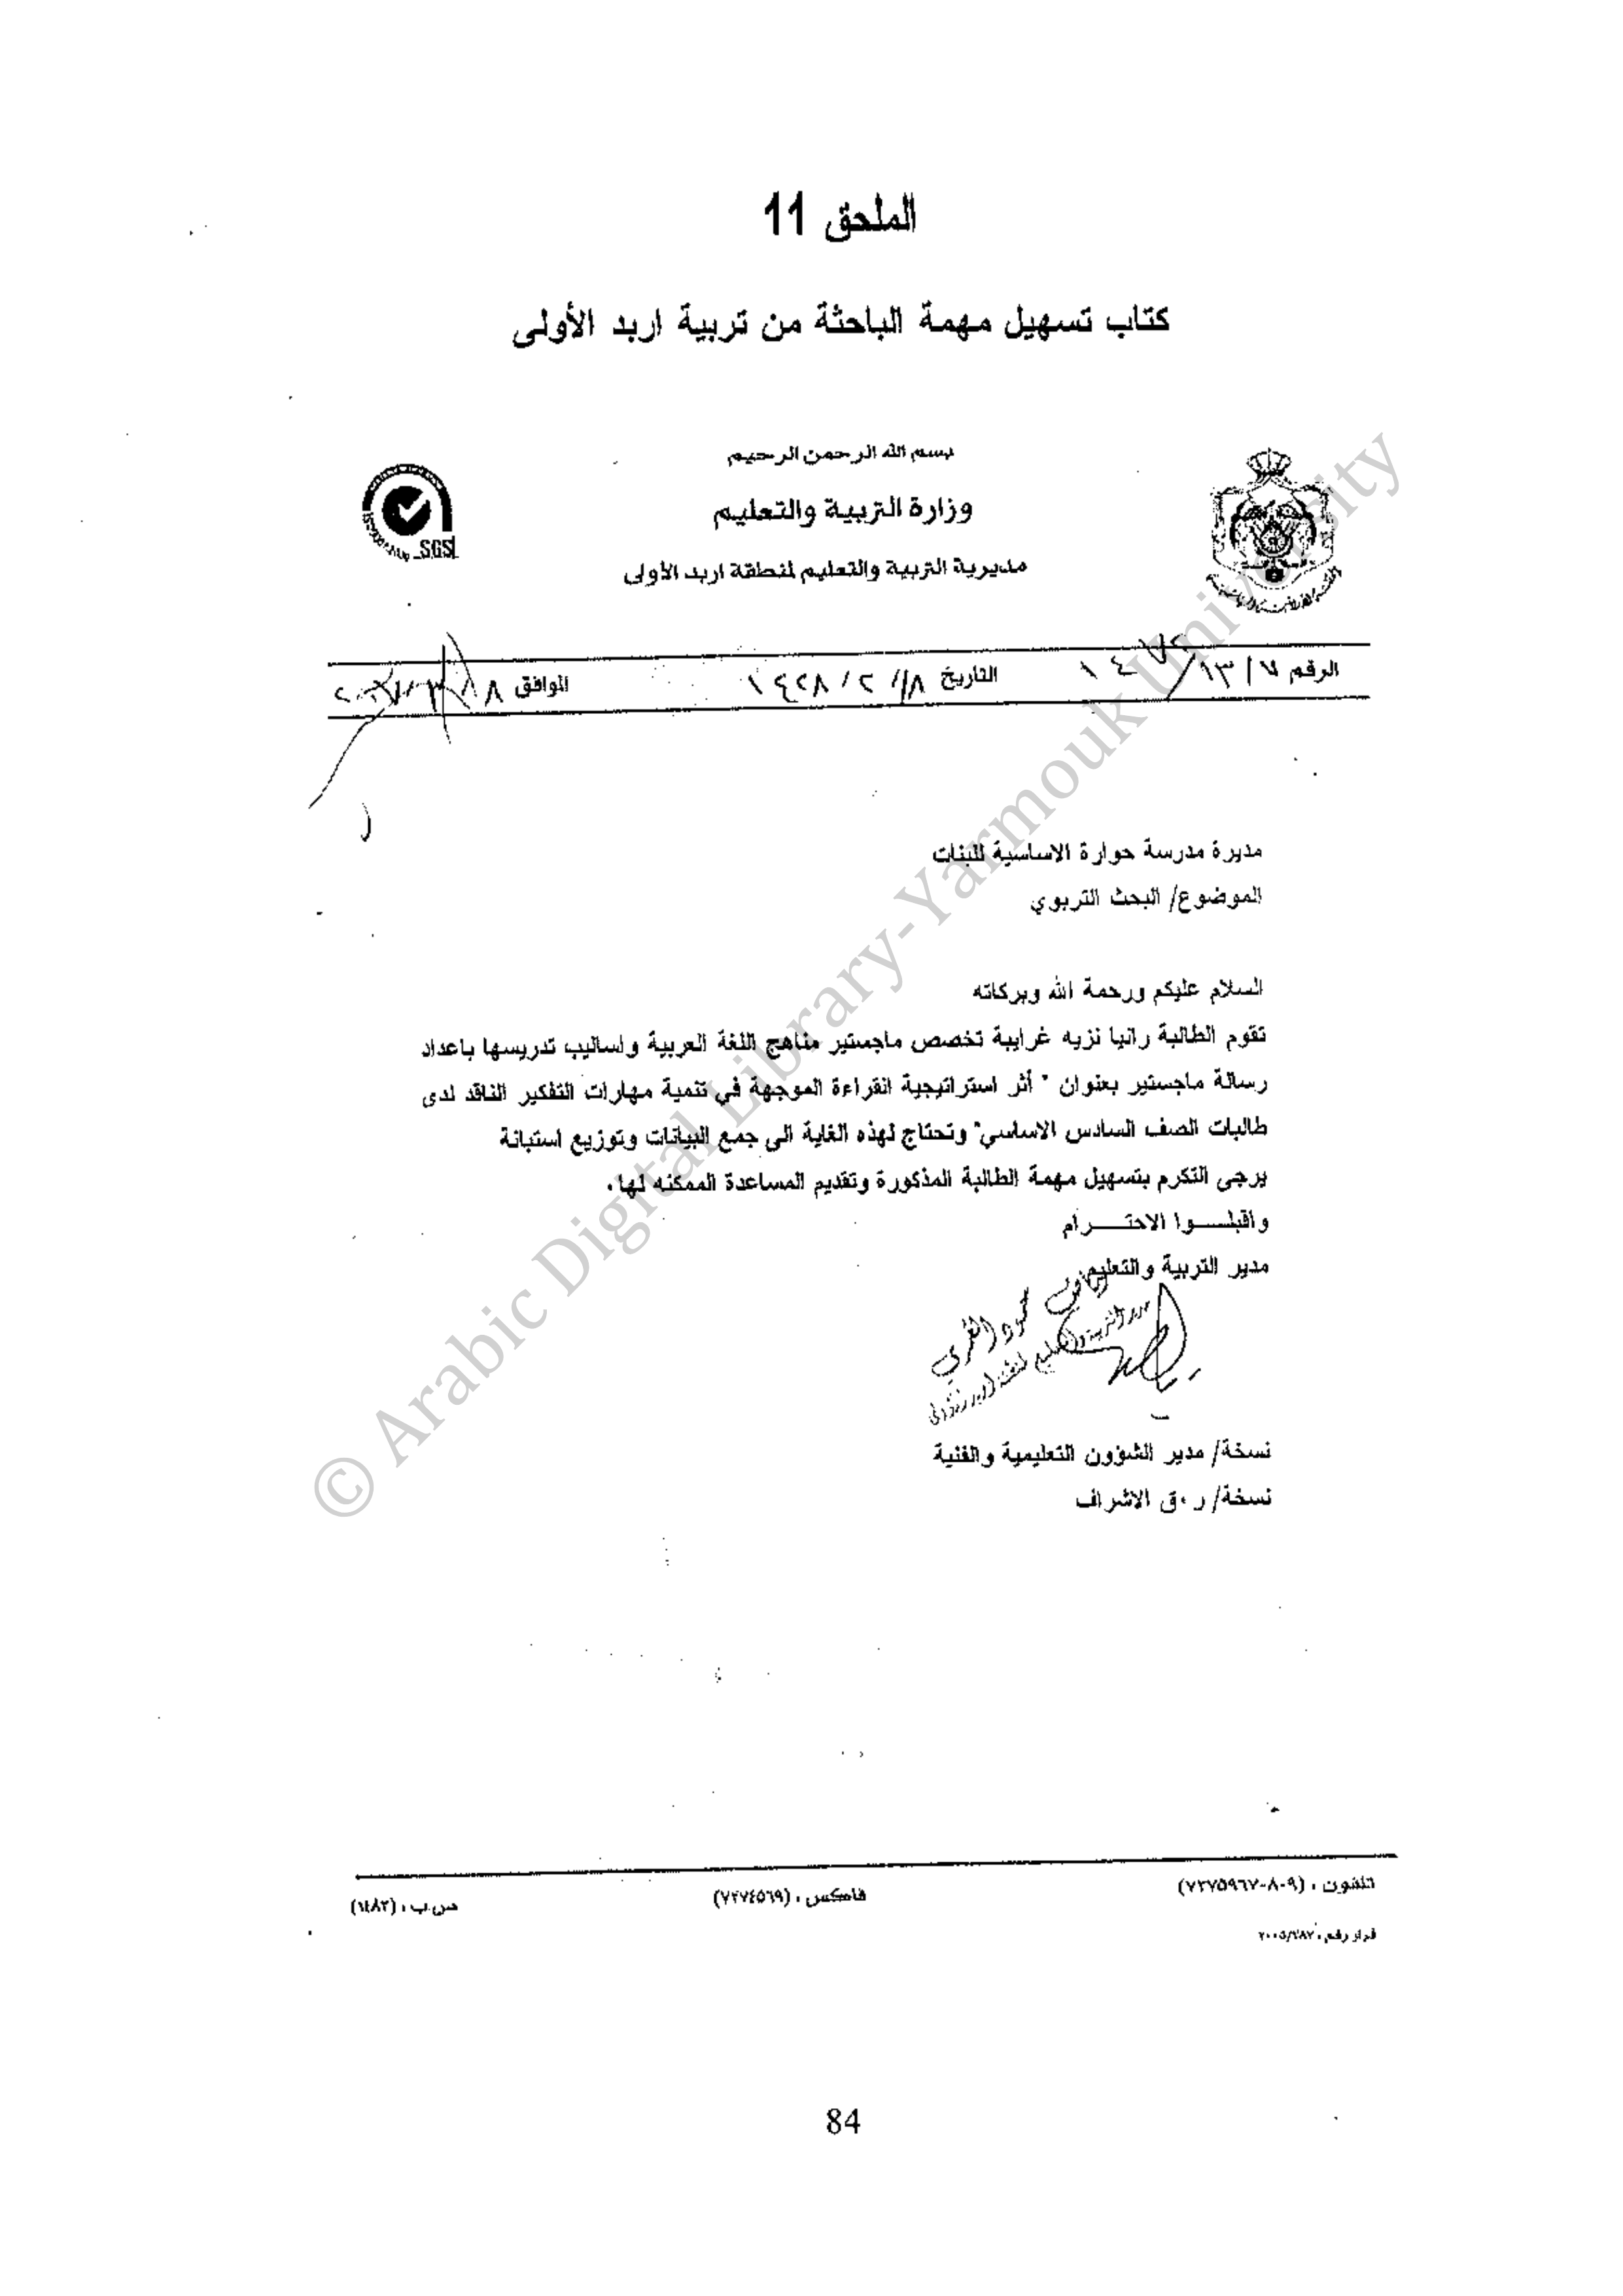 الملحق 11
كتاب تسهيل مهمة الباحثة من تربية اربد الأولى
بسم الله الرحمن الرحيم
وزارة التربية والتعليم
مديرية التربية والتعليم لمنطقة اربد الأولى
SGS
الرقم ٧/١٣/ التاريخ ١٨/٢/١٤٢٨ الموافق
مديرة مدرسة حوارة الاساسية للبنات
الموضوع/ البحث التربوي
السلام عليكم ورحمة الله وبركاته
تقوم الطالبة رانيا نزيه غرايبة تخصص ماجستير مناهج اللغة العربية واساليب تدريسها باعداد
رسالة ماجستير بعنوان " أثر استراتيجية القراءة الموجهة في تنمية مهارات التفكير الناقد لدى
طالبات الصف السادس الاساسي" وتحتاج لهذه الغاية الى جمع البيانات وتوزيع استبانة
يرجى التكرم بتسهيل مهمة الطالبة المذكورة وتقديم المساعدة الممكنه لها.
واقبلـــوا الاحتـــرام
مدير التربية والتعليم
نسخة/ مدير الشؤون التعليمية والفنية
نسخة/ ر.ق الاشراف
تلفون : (٩-٨-٧٢٧٥٩٦٧) فاكس : (٧٢٧٤٥٦٩) ص.ب :
قرار رقم :
84
© Arabic Digital Library-Yarmouk University